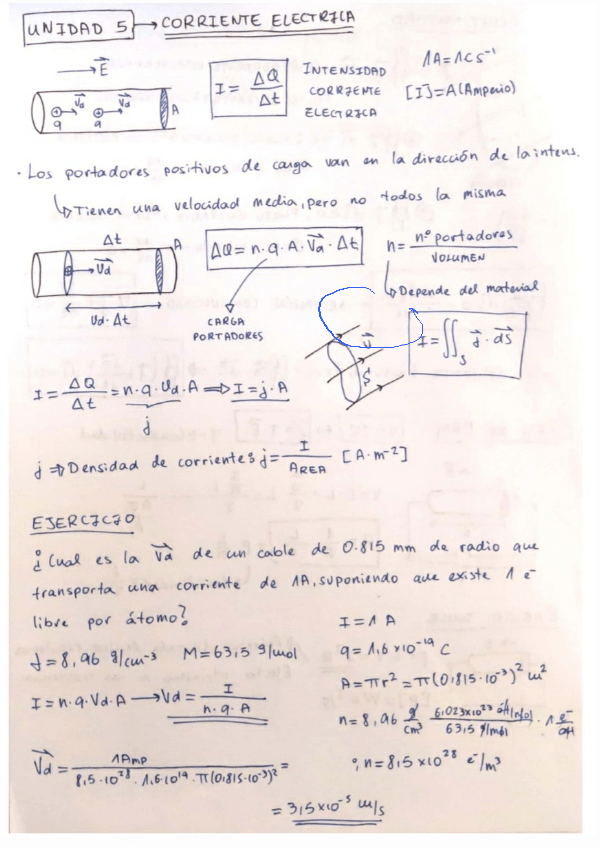 UNIDAD 5 → CORRIENTE ELECTRICA
→ E
I = ΔQ/Δt
INTENSIDAD CORRIENTE ELECTRICA
1A = 1C s⁻¹
[I] = A (Amperio)
Vd Vd A
q q
· Los portadores positivos de carga van en la dirección de la intens.
↳ Tienen una velocidad media, pero no todos la misma
Δt A
Vd
Vd · Δt
ΔQ = n · q · A · Vd · Δt
n = nº portadores / VOLUMEN
↳ Depende del material
CARGA PORTADORES
I = ∬s j · ds
I = ΔQ/Δt = n · q · Vd · A ⇒ I = j · A
j
j ⇒ Densidad de corriente: j = I/AREA [A·m⁻²]
EJERCICIO
¿Cual es la Vd de un cable de 0.815 mm de radio que
transporta una corriente de 1A, suponiendo que existe 1 e⁻
libre por átomo?
I = 1 A
J = 8,96 g/cm⁻³ M = 63,5 g/mol
q = 1,6 × 10⁻¹⁹ C
A = πr² = π(0,815·10⁻³)² m²
I = n · q · Vd · A → Vd = I / n · q · A
n = 8,96 g/cm³ · 6,023×10²³ at/mol / 63,5 g/mol · 1 e⁻/at
Vd = 1Amp / 8,5·10²⁸ · 1,6·10¹⁹ · π(0,815·10⁻³)² =
; n = 8,5 × 10²⁸ e⁻/m³
= 3,5 × 10⁻⁵ m/s